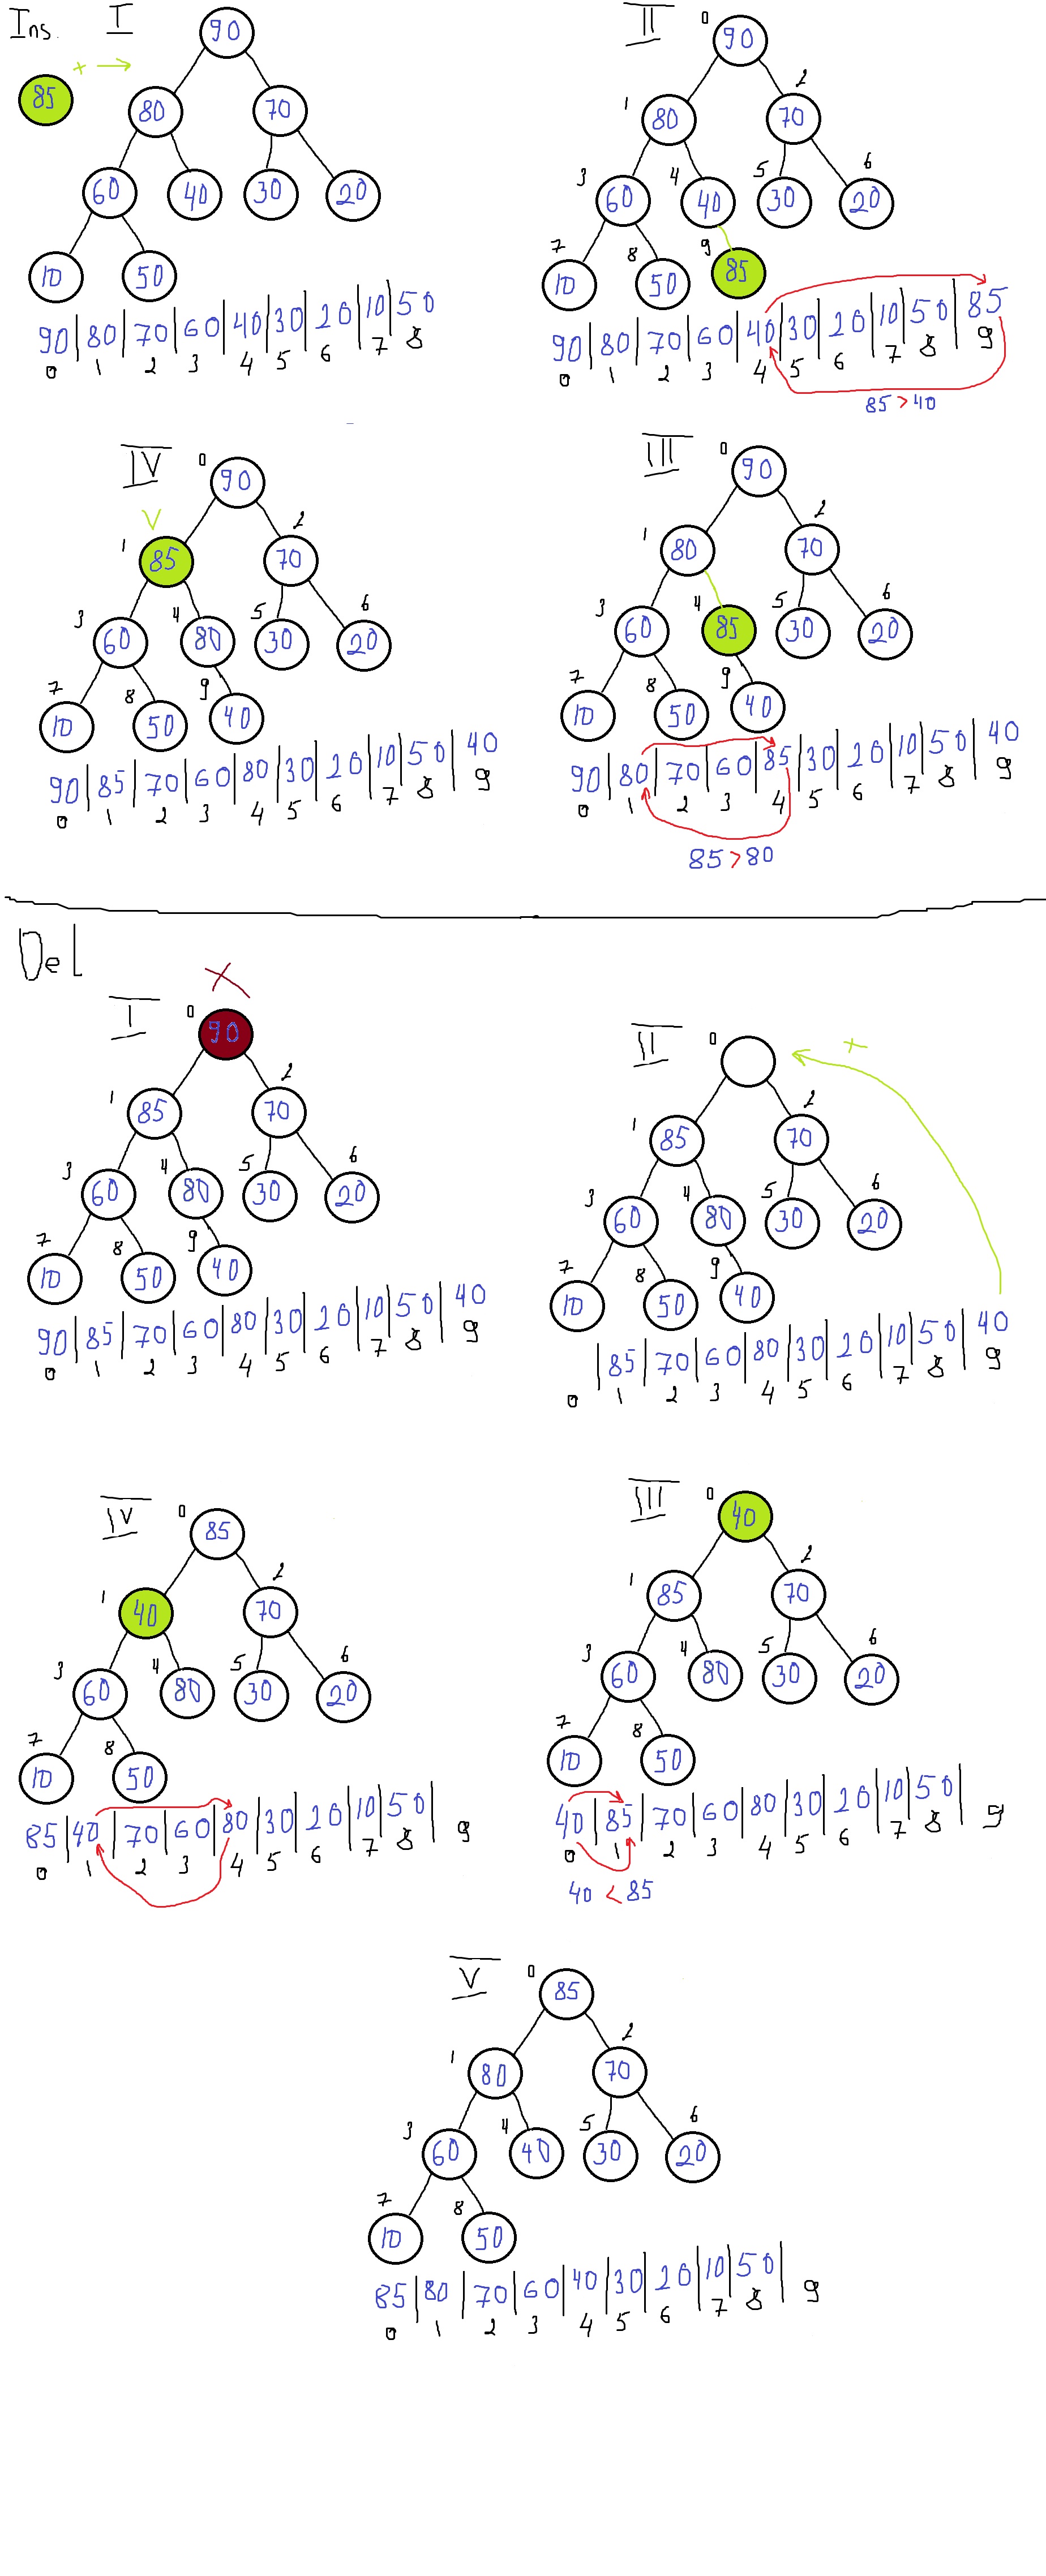 Ins. I
90
+
85
80 70
60 40 30 20
10 50
90|80|70|60|40|30|20|10|50
0 1 2 3 4 5 6 7 8
II
0
90
1 2
80 70
3 4 5 6
60 40 30 20
7 8 9
10 50 85
90|80|70|60|40|30|20|10|50|85
0 1 2 3 4 5 6 7 8 9
85>40
IV
0
90
V
1 2
85 70
3 4 5 6
60 80 30 20
7 8 9
10 50 40
90|85|70|60|80|30|20|10|50|40
0 1 2 3 4 5 6 7 8 9
III
0
90
1 2
80 70
3 4 5 6
60 85 30 20
7 8 9
10 50 40
90|80|70|60|85|30|20|10|50|40
0 1 2 3 4 5 6 7 8 9
85>80
Del
X
I
0
90
1 2
85 70
3 4 5 6
60 80 30 20
7 8 9
10 50 40
90|85|70|60|80|30|20|10|50|40
0 1 2 3 4 5 6 7 8 9
II
0
+
1 2
85 70
3 4 5 6
60 80 30 20
7 8 9
10 50 40
|85|70|60|80|30|20|10|50|40
0 1 2 3 4 5 6 7 8 9
IV
0
85
1 2
40 70
3 4 5 6
60 80 30 20
7 8
10 50
85|40|70|60|80|30|20|10|50|
0 1 2 3 4 5 6 7 8 9
III
0
40
1 2
85 70
3 4 5 6
60 80 30 20
7 8
10 50
40|85|70|60|80|30|20|10|50|
0 1 2 3 4 5 6 7 8 9
40<85
V
0
85
1 2
80 70
3 4 5 6
60 40 30 20
7 8
10 50
85|80|70|60|40|30|20|10|50|
0 1 2 3 4 5 6 7 8 9